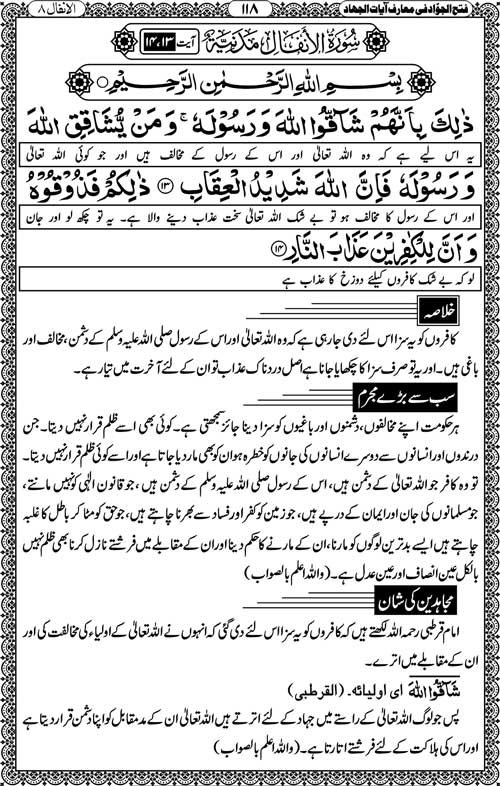 فتح الجوّاد فی معارف آیات الجهاد ۱۱۸ الانفال ۸
سُوْرَةُ الْاَنْفَالِ مَدَنِیَّةٌ آیت ۱۴،۱۳
بِسْمِ اللهِ الرَّحْمٰنِ الرَّحِیْمِ
ذٰلِكَ بِاَنَّهُمْ شَآقُّوا اللهَ وَرَسُوْلَهٗ ۚ وَمَنْ یُّشَاقِقِ اللهَ
یہ اس لیے ہے کہ وہ اللہ تعالیٰ اور اس کے رسول کے مخالف ہیں اور جو کوئی اللہ تعالیٰ
وَرَسُوْلَهٗ فَاِنَّ اللهَ شَدِیْدُ الْعِقَابِ ﴿۱۳﴾ ذٰلِكُمْ فَذُوْقُوْهُ
اور اس کے رسول کا مخالف ہو تو بے شک اللہ تعالیٰ سخت عذاب دینے والا ہے۔ یہ تو چکھ لو اور جان
وَاَنَّ لِلْكٰفِرِیْنَ عَذَابَ النَّارِ ﴿۱۴﴾
لو کہ بے شک کافروں کیلئے دوزخ کا عذاب ہے
خلاصہ
کافروں کو یہ سزا اس لئے دی جارہی ہے کہ وہ اللہ تعالیٰ اور اس کے رسول صلی اللہ علیہ وسلم کے دشمن، مخالف اور
باغی ہیں۔ اور یہ تو صرف سزا کا چکھایا جانا ہے اصل دردناک عذاب تو ان کے لئے آخرت میں تیار ہے۔
سب سے بڑے مجرم
ہر حکومت اپنے مخالفوں، دشمنوں اور باغیوں کو سزا دینا جائز سمجھتی ہے۔ کوئی بھی اسے ظلم قرار نہیں دیتا۔ جن
درندوں اور انسانوں سے دوسرے انسانوں کی جانوں کو خطرہ ہو ان کو بھی مار دیا جاتا ہے اور اسے کوئی ظلم قرار نہیں دیتا۔
تو وہ کافر جو اللہ تعالیٰ کے دشمن ہیں، اس کے رسول صلی اللہ علیہ وسلم کے دشمن ہیں، جو قانون الٰہی کو نہیں مانتے،
جو مسلمانوں کی جان اور ایمان کے درپے ہیں، جو زمین کو کفر اور فساد سے بھرنا چاہتے ہیں، جو حق کو مٹا کر باطل کا غلبہ
چاہتے ہیں ایسے بدترین لوگوں کو مارنا، ان کے مارنے کا حکم دینا اور ان کے مقابلے میں فرشتے نازل کرنا بھی ظلم نہیں
بالکل عین انصاف اور عین عدل ہے۔ (واللہ اعلم بالصواب)
مجاہدین کی شان
امام قرطبی رحمہ اللہ لکھتے ہیں کہ کافروں کو یہ سزا اس لئے دی گئی کہ انہوں نے اللہ تعالیٰ کے اولیاء کی مخالفت کی اور
ان کے مقابلے میں اترے۔
شَآقُّوا اللهَ ای اولیائہ۔ (القرطبی)
پس جو لوگ اللہ تعالیٰ کے راستے میں جہاد کے لئے اترتے ہیں اللہ تعالیٰ ان کے مدمقابل کو اپنا دشمن قرار دیتا ہے
اور اس کی ہلاکت کے لئے فرشتے اتارتا ہے۔ (واللہ اعلم بالصواب)